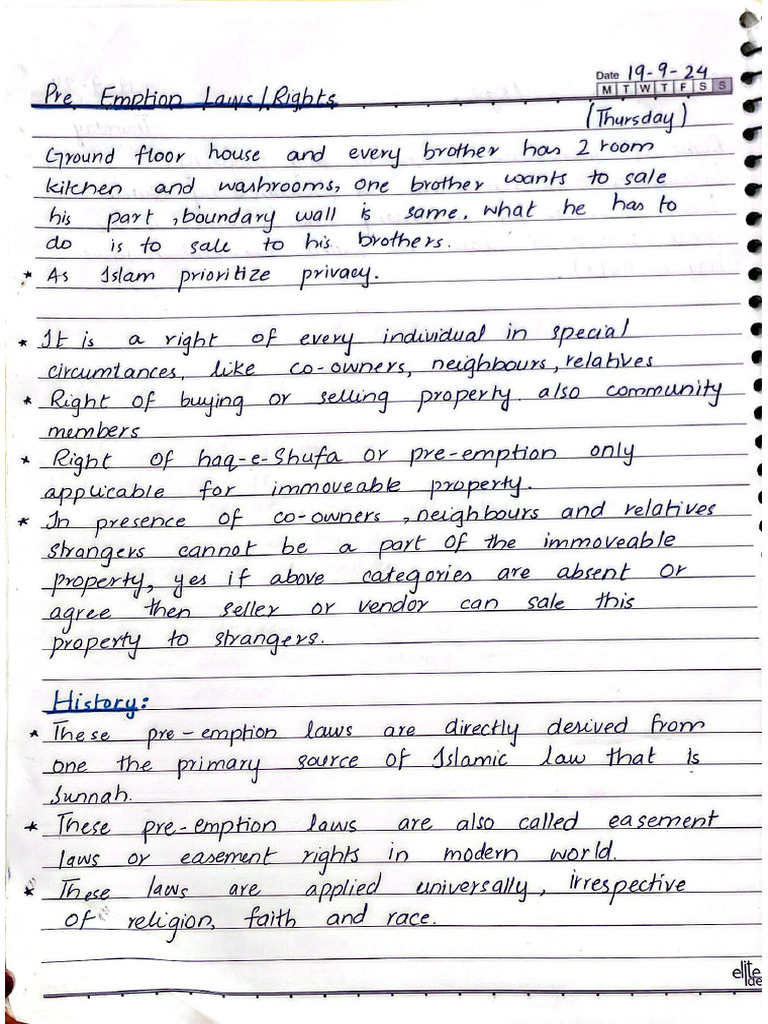 Date 19-9-24
M T W T F S S
Pre Emption Laws/Rights
(Thursday)
Ground floor house and every brother has 2 room
kitchen and washrooms, one brother wants to sale
his part, boundary wall is same. what he has to
do is to sale to his brothers.
* As Islam prioritize privacy.
* It is a right of every individual in special
circumtances, like co-owners, neighbours, relatives
* Right of buying or selling property. also community
members
* Right of haq-e-Shufa or pre-emption only
applicable for immoveable property.
* In presence of co-owners, neighbours and relatives
strangers cannot be a part of the immoveable
property, yes if above categories are absent or
agree then seller or vendor can sale this
property to strangers.
History:
* These pre-emption laws are directly desired from
one the primary source of Islamic law that is
Sunnah.
* These pre-emption laws are also called easement
laws or easement rights in modern world.
* These laws are applied universally, irrespective
of religion, faith and race.
elite